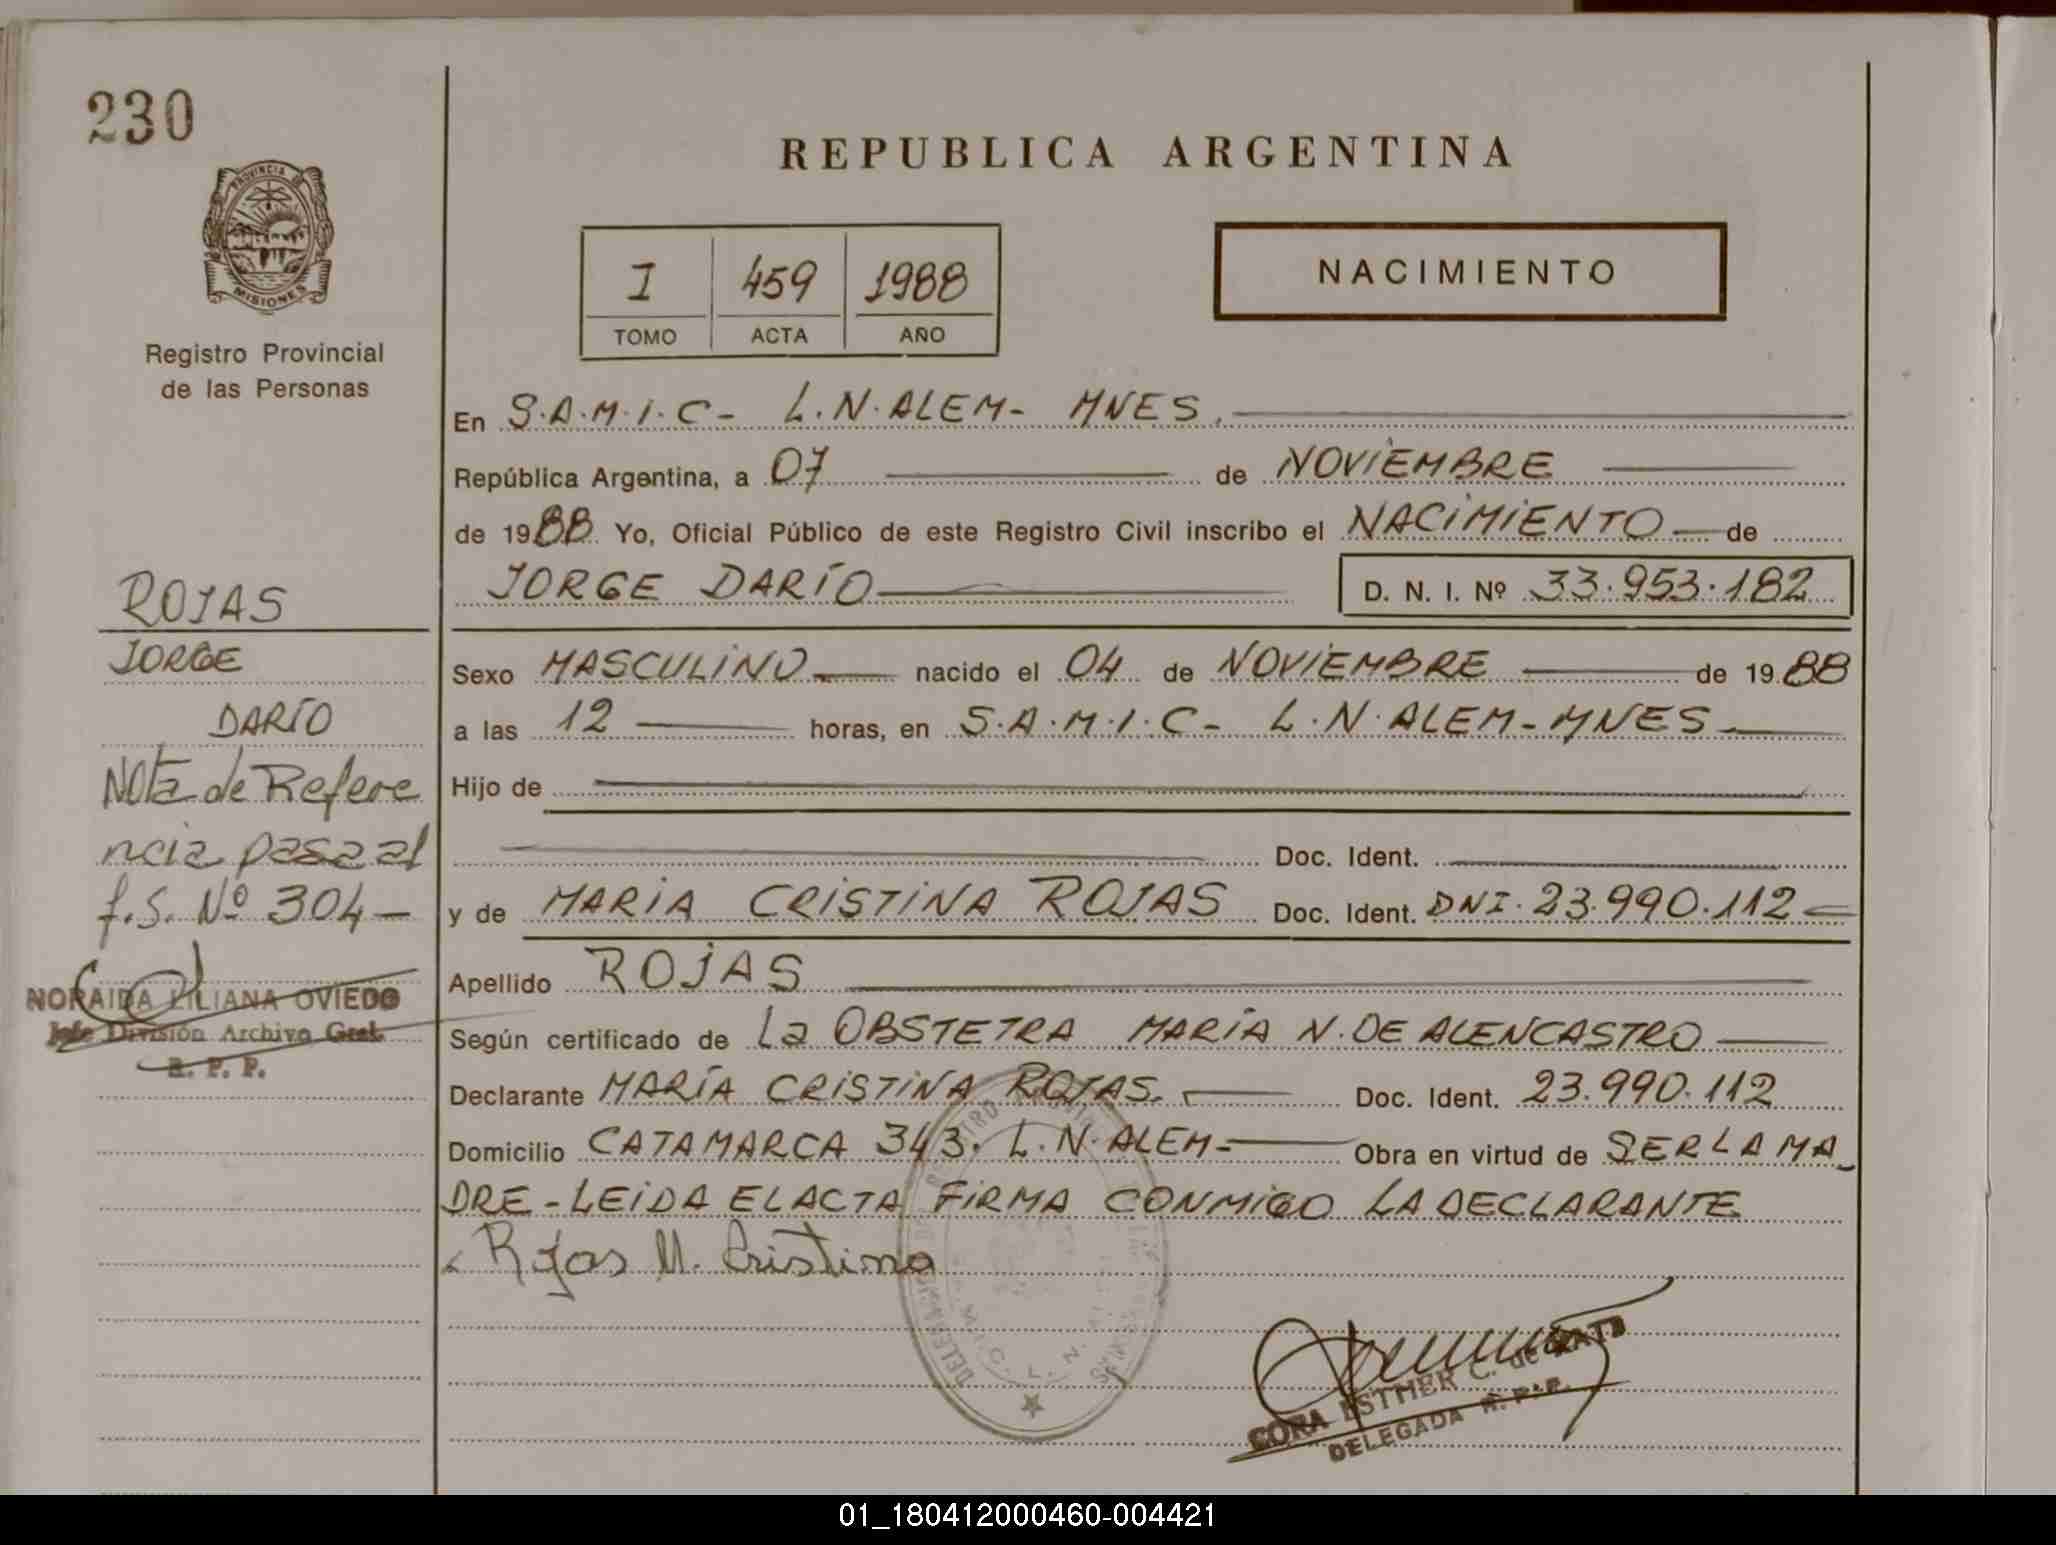 230
PROVINCIA DE
MISIONES
Registro Provincial
de las Personas
REPUBLICA ARGENTINA
I 459 1988
TOMO ACTA AÑO
NACIMIENTO
En S.A.M.I.C- L.N.ALEM- MNES.
República Argentina, a 07 de NOVIEMBRE
de 1988 Yo, Oficial Público de este Registro Civil inscribo el NACIMIENTO de
JORGE DARÍO D. N. I. Nº 33.953.182
ROJAS
JORGE
DARÍO
Nota de Refere
ncia pasa al
f.S. Nº 304-
NORAIDA LILIANA OVIEDO
Jefe División Archivo Gral.
R. P. P.
Sexo MASCULINO nacido el 04 de NOVIEMBRE de 1988
a las 12 horas, en S.A.M.I.C- L.N.ALEM-MNES
Hijo de
Doc. Ident.
y de MARIA CRISTINA ROJAS Doc. Ident. DNI.23.990.112
Apellido ROJAS
Según certificado de La OBSTETRA MARÍA N. DE ALENCASTRO
Declarante MARÍA CRISTINA ROJAS. Doc. Ident. 23.990.112
Domicilio CATAMARCA 343. L.N.ALEM- Obra en virtud de SER LA MA_
DRE-LEIDA EL ACTA FIRMA CONMIGO LA DECLARANTE
Rojas M. Cristina
CORA ESTHER C. de
DELEGADA R.P.P.
01_180412000460-004421